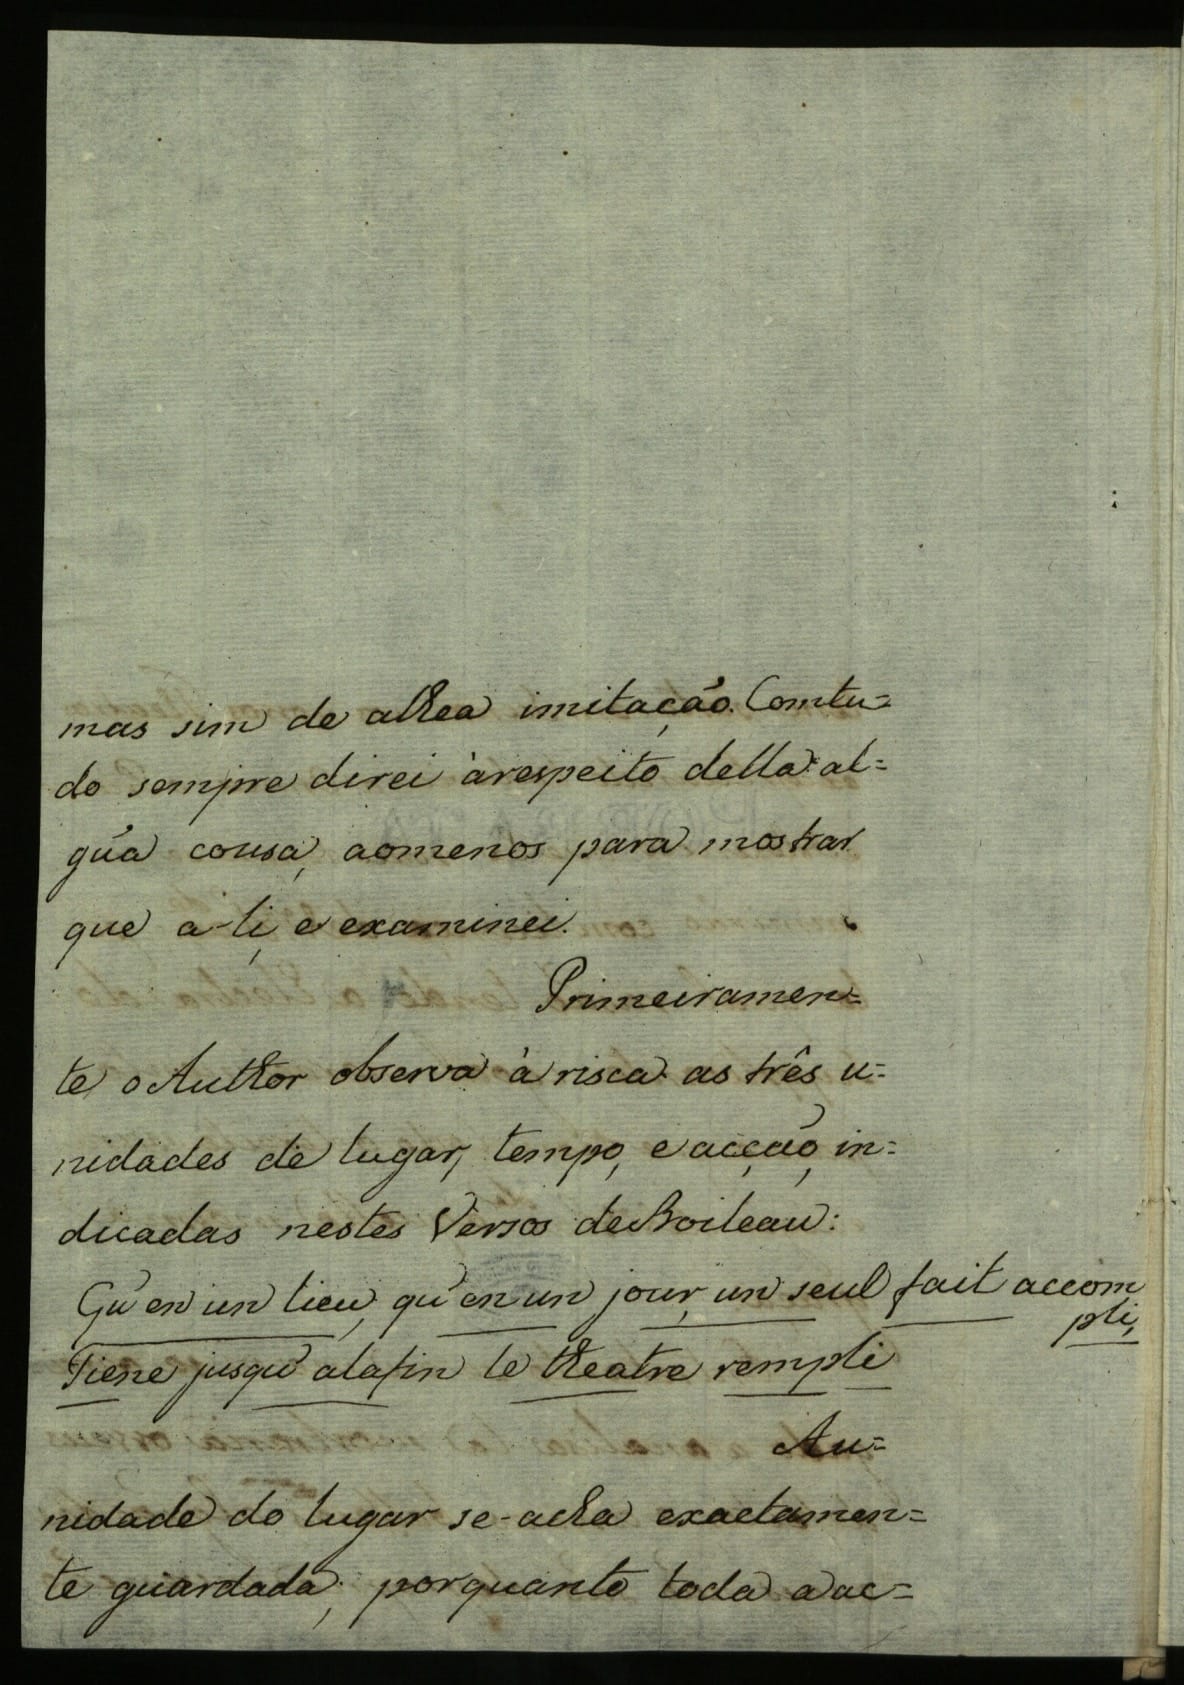 mas sim de alhea imitação. Comtu=
do sempre direi àrespeito della al=
gũa cousa, aomenos para mostrar
que a-li, e examinei.
Primeiramen=
te o Author observa à risca as três u=
nidades de lugar, tempo, e acção, in=
dicadas nestes Versos de Boileau:
Qu'en un lieu, qu'en un jour, un seul fait accom
pli,
Tiene jusqu' alafin le theatre rempli
Au=
nidade do lugar se-acha exactamen=
te guardada; porquanto toda a ac=